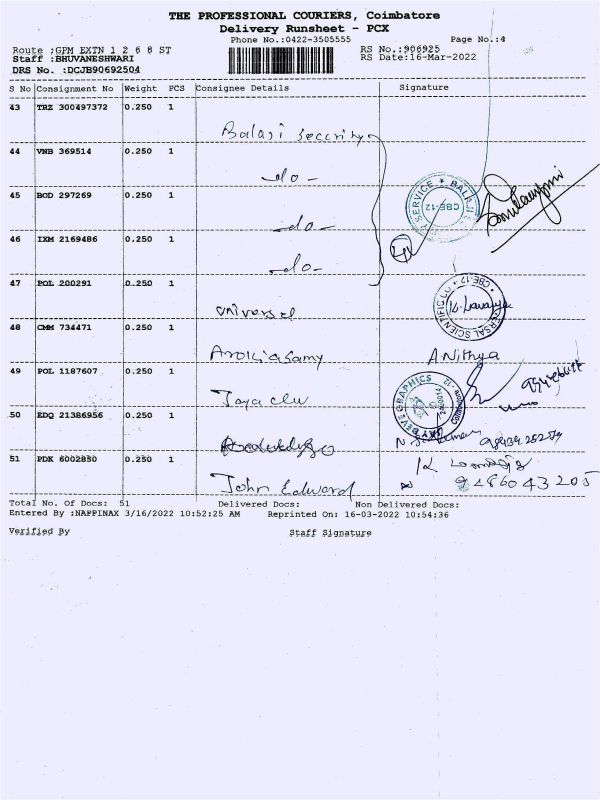 THE PROFESSIONAL COURIERS, Coimbatore
Delivery Runsheet - PCX
Phone No.:0422-3505555 Page No.:4
Route :GPM EXTN 1 2 6 8 ST RS No.:906925
Staff :BHUVANESHWARI RS Date:16-Mar-2022
DRS No. :DCJB90692504
S No Consignment No Weight PCS Consignee Details Signature
43 TRZ 300497372 0.250 1
Balaji security
44 VNB 369514 0.250 1
-do-
SERVICE * BALAJI
CBE-12
45 BOD 297269 0.250 1
-do-
46 IXM 2169486 0.250 1
-do-
47 POL 200291 0.250 1
universal
CBE-12
48 CMM 734471 0.250 1
Arokiasamy A Nithya
49 POL 1187607 0.250 1
GRAPHICS
50 EDQ 21386956 0.250 1
51 PDK 6002850 0.250 1
John Edward 9486043205
Total No. Of Docs: 51 Delivered Docs: Non Delivered Docs:
Entered By :NAPPINAX 3/16/2022 10:52:25 AM Reprinted On: 16-03-2022 10:54:36
Verified By Staff Signature